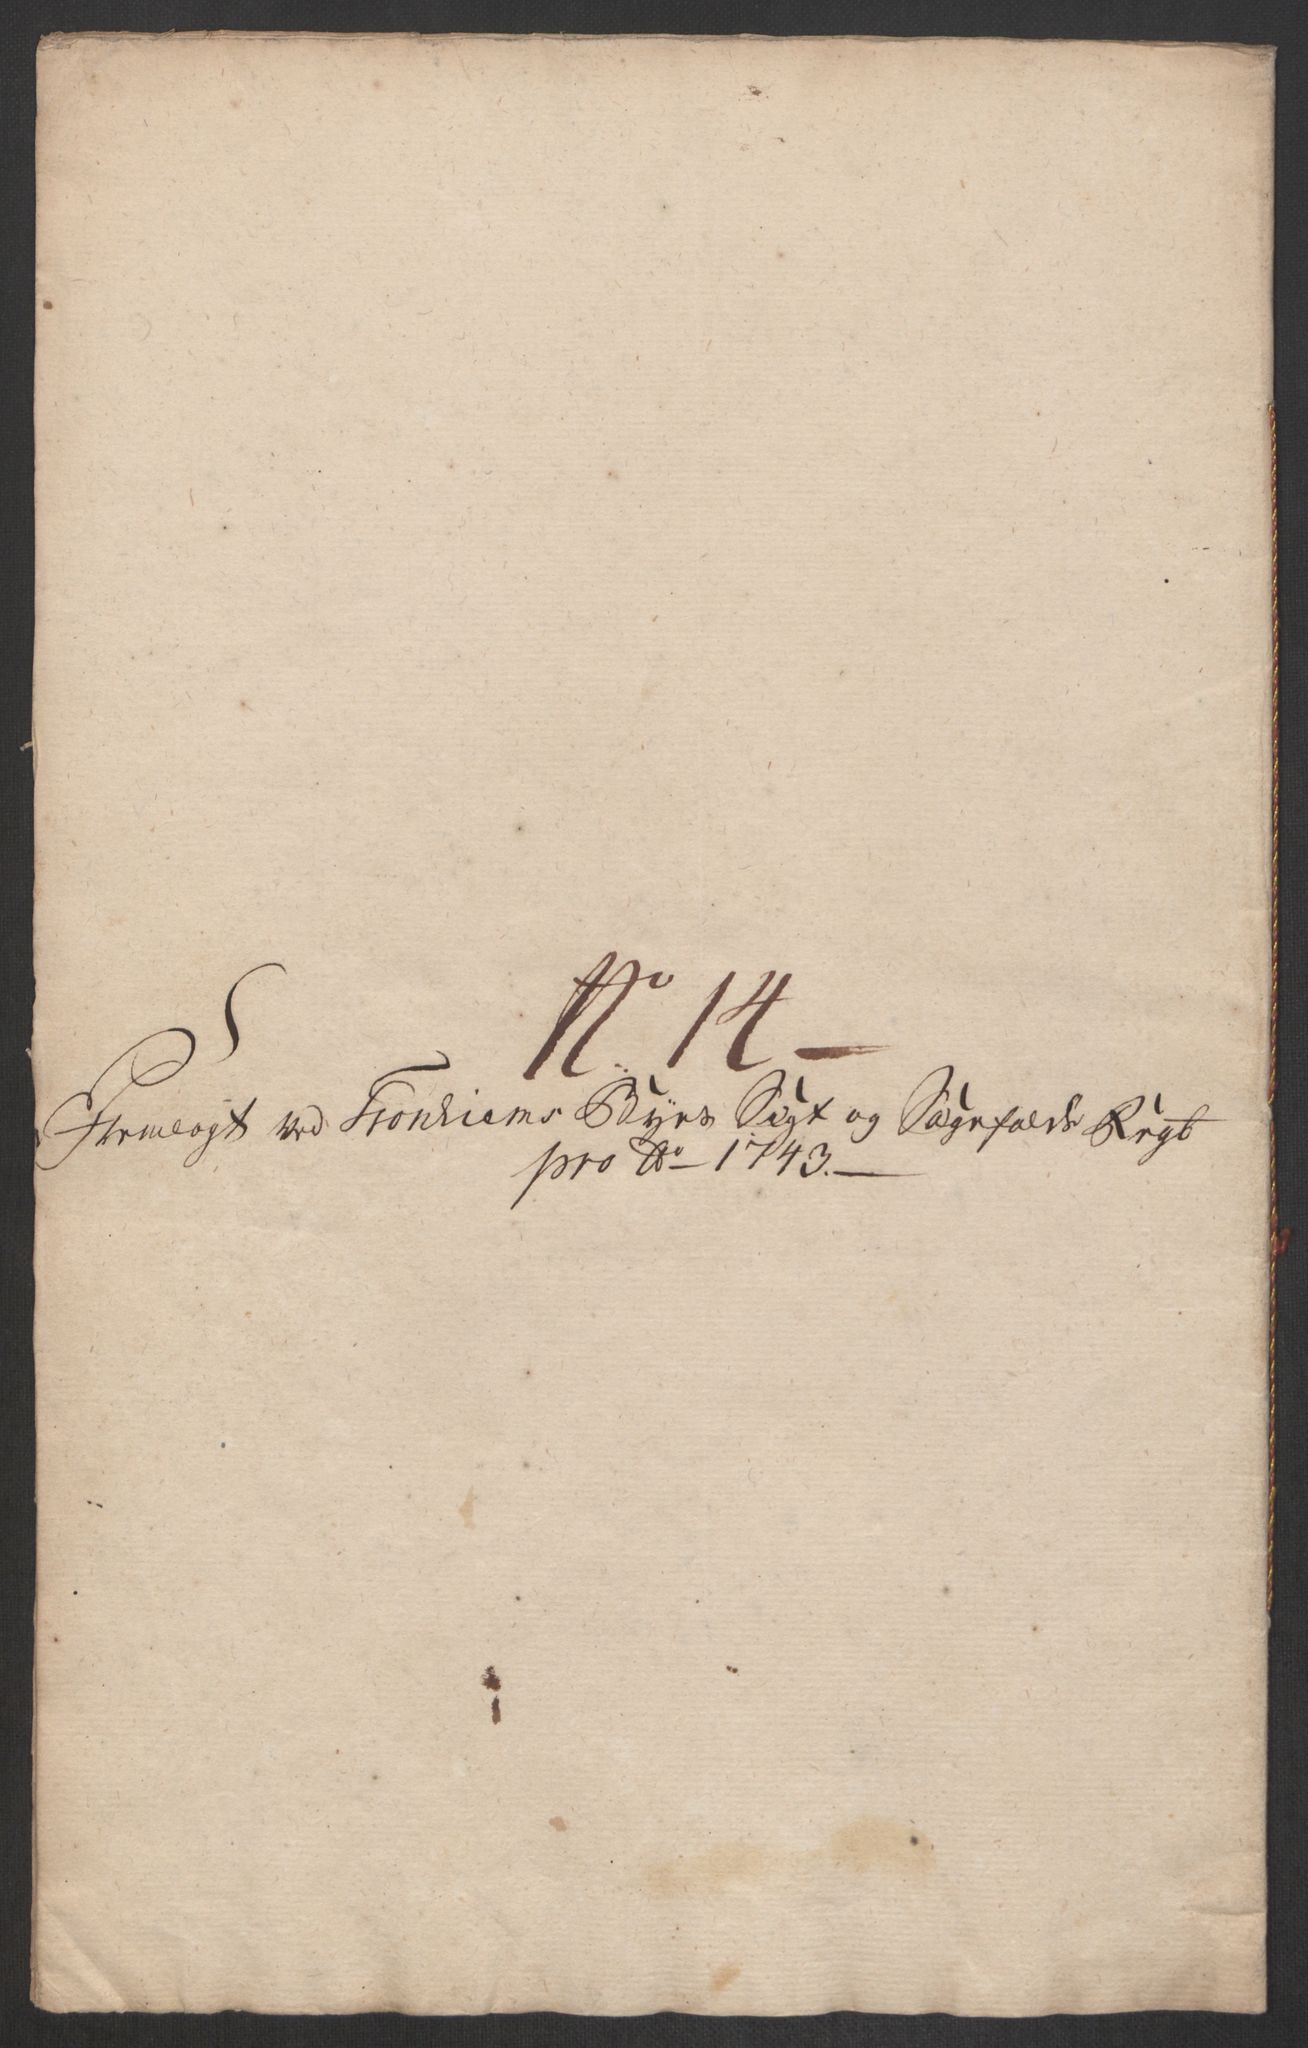 No 14
Fremlagt ved Trondhiems Byes Sigt og Sagefalds Regt
pro Ao 1743.